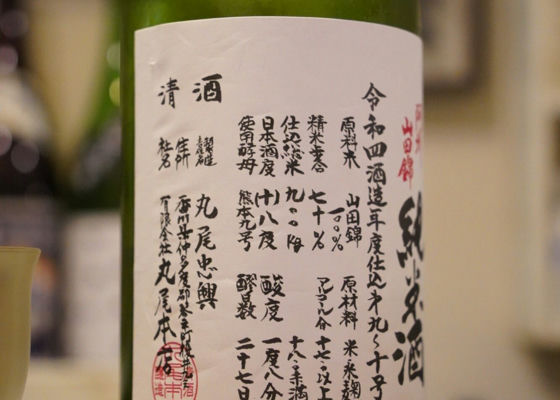 山田錦
純米酒
令和四酒造年度仕込み第九〜十号
原料米 山田錦 一〇〇% 原材料 米 米麹
精米歩合 七十% アルコール分 十七以上
仕込総米 九〇〇kg 十八未満
日本酒度 (+)十八度 酸度 一度八分
使用酵母 熊本九号 醪日数 二十七日
清酒
丸尾忠興
住所 香川県仲多度郡琴平町榎井
有限会社丸尾本店